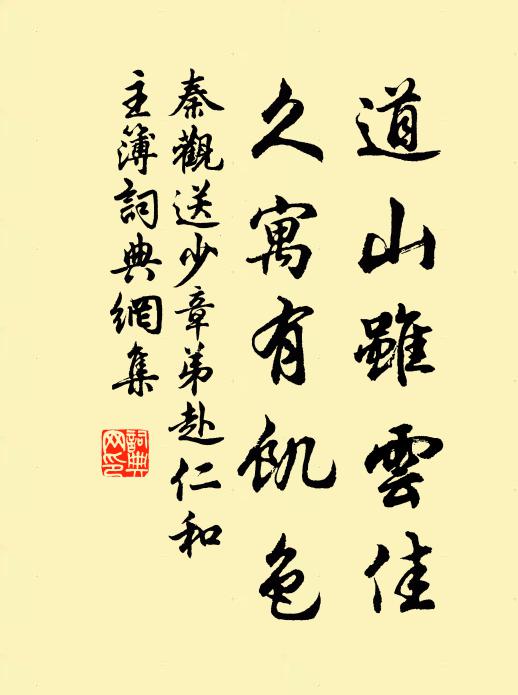 道山雖雲佳
久寓有飢色
秦觀送少章弟赴仁和
主簿詞典網集
詞典
网印